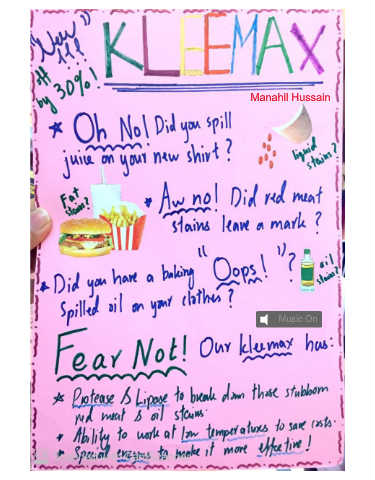 "New"
!!!
KLEEMAX
by 30%!
Manahil Hussain
* Oh No! Did you spill
juice on your new shirt?
liquid
stains?
Fat
stains?
* Aw no! Did red meat
stains leave a mark?
* Did you have a baking "Oops!"?
Spilled oil on your clothes?
oil
stains?
Music On
Fear Not! Our kleemax has:
* Protease & Lipase to break down those stubborn
red meat & oil stains.
* Ability to work at low temperatures to save costs.
* Special enzyms to make it more effective!